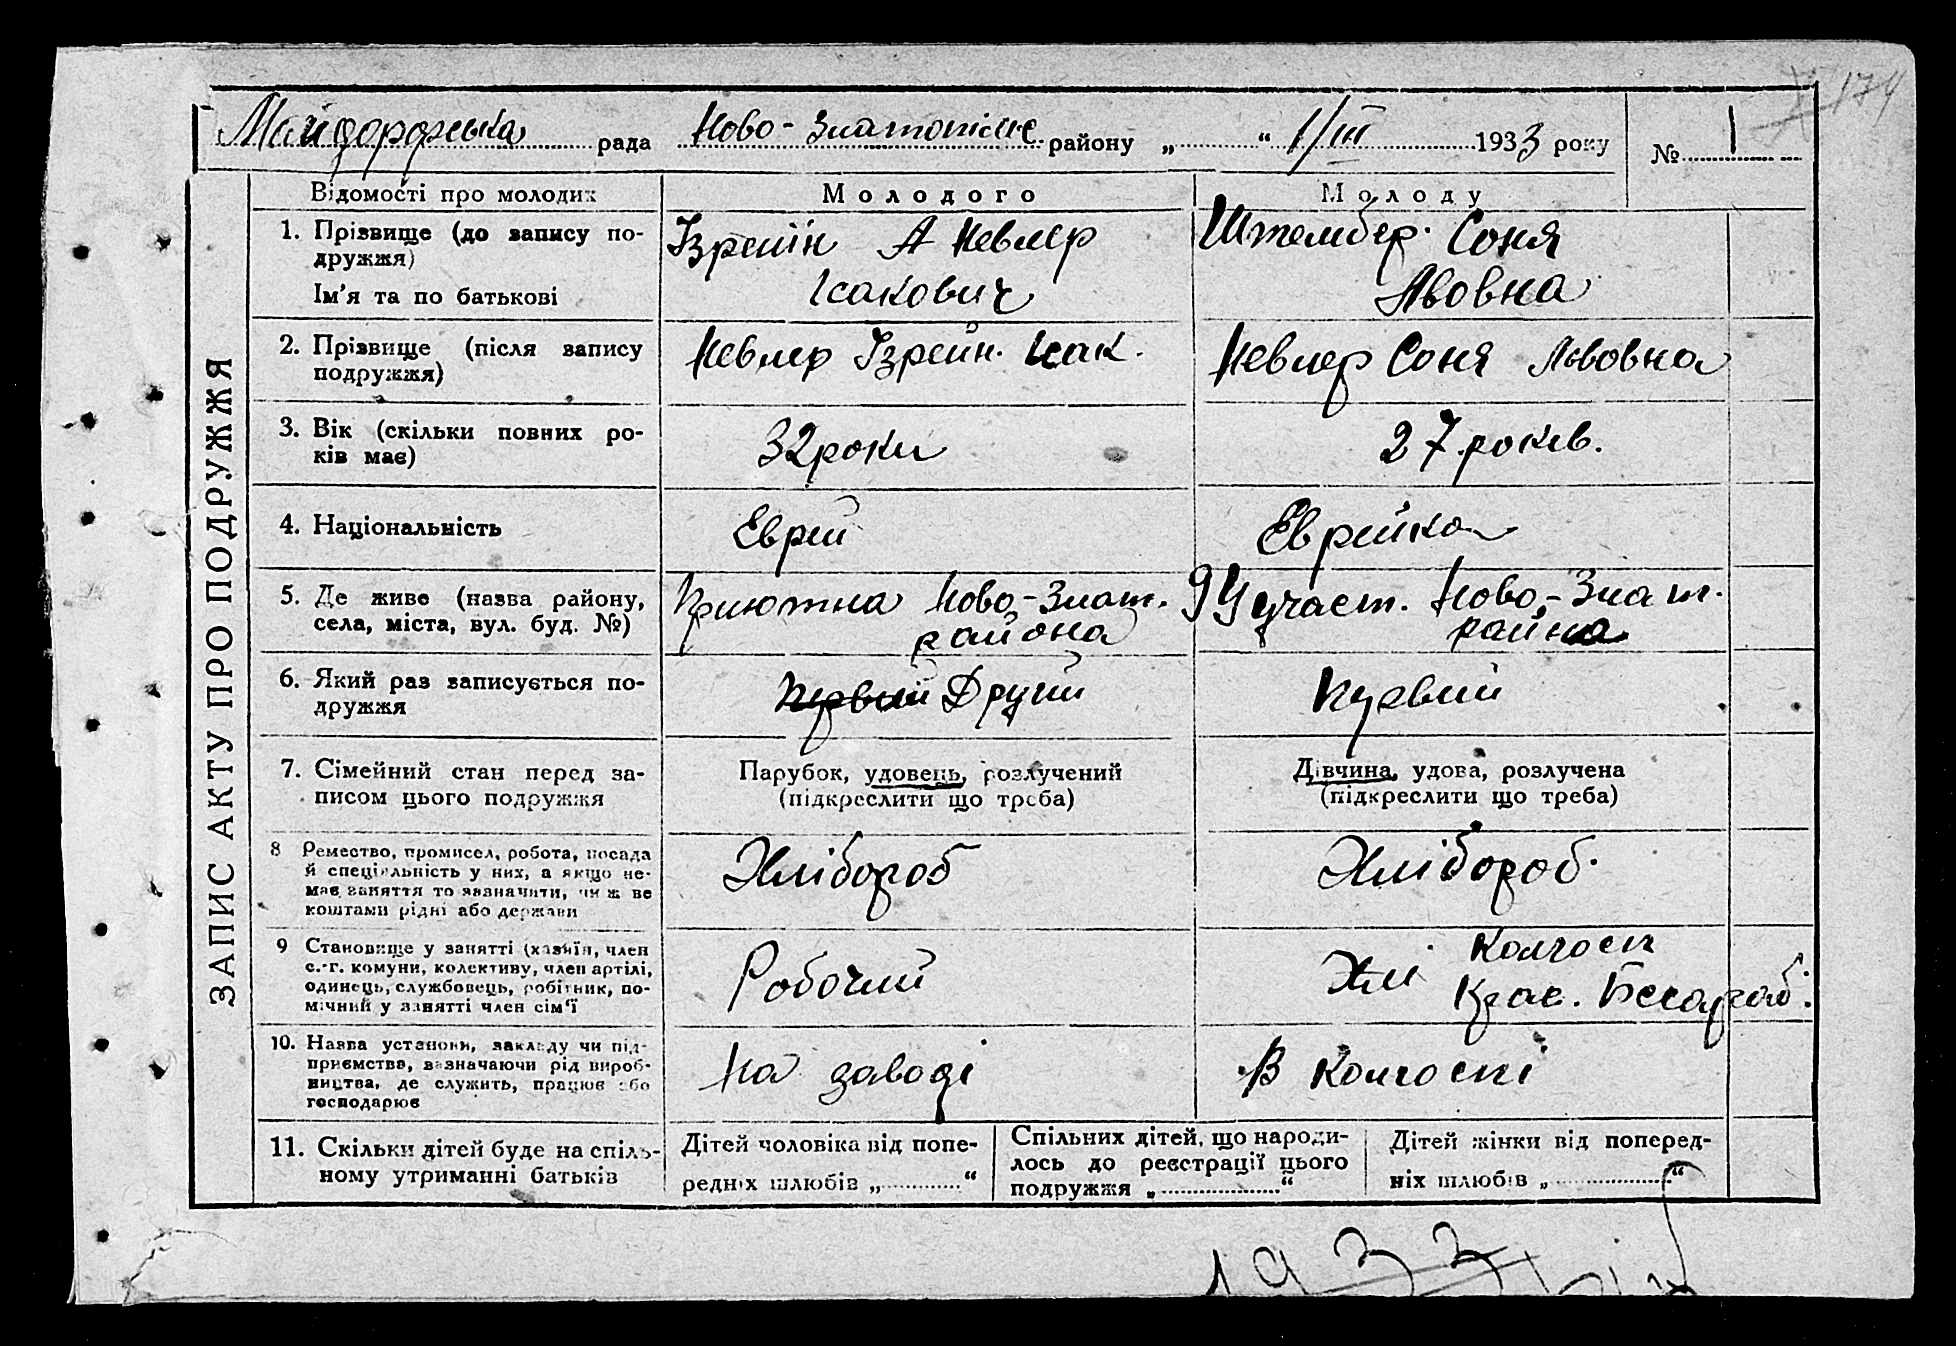 174
Майдорфська рада Ново-Златопільс. району „ “ 1/III 1933 року № 1
ЗАПИС АКТУ ПРО ПОДРУЖЖЯ
Відомості про молодих
Молодого
Молоду
1. Прізвище (до запису по-
дружжя)
Ім'я та по батькові
Ізреіін А Невлер
Ісакович
Штембер. Соня
Львовна
2. Прізвище (після запису
подружжя)
Невлер Ізрейн. Исак.
Невлер Соня Львовна
3. Вік (скільки повних ро-
ків має)
32 роки
27 років.
4. Національність
Еврей
Еврейка
5. Де живе (назва району,
села, міста, вул. буд. №)
Приютна Ново-Злат.
района
9 участ. Ново-Злат.
района
6. Який раз записується по-
дружжя
Первый Другий
Первий
7. Сімейний стан перед за-
писом цього подружжя
Парубок, удовець, розлучений
(підкреслити що треба)
Дівчина, удова, розлучена
(підкреслити що треба)
8 Ремество, промисел, робота, посада
й спеціяльність у них, а якщо не-
має заняття то зазначити, чи ж ве
коштами рідні або держави
Хлібороб
Хлібороб.
9 Становище у занятті (хазяїн, член
с.-г. комуни, колективу, член артілі,
одинець, службовець, робітник, по-
мічний у занятті член сім'ї
Робочий
Хлі Колгосп
Крас. Бесараб.
10. Назва установи, закладу чи під-
приємства, зазначаючи рід вироб-
ництва, де служить, працює або
господарює
На заводі
В Колгоспі
11. Скільки дітей буде на спіль-
ному утриманні батьків
Дітей чоловіка від попе-
редніх шлюбів „ “
Спільних дітей, що народи-
лось до реєстрації цього
подружжя „ “
Дітей жінки від поперед-
ніх шлюбів „ “
1933